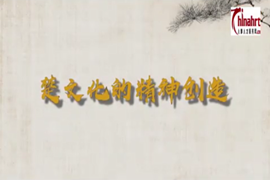 Chinahrt
楚文化的精神创造